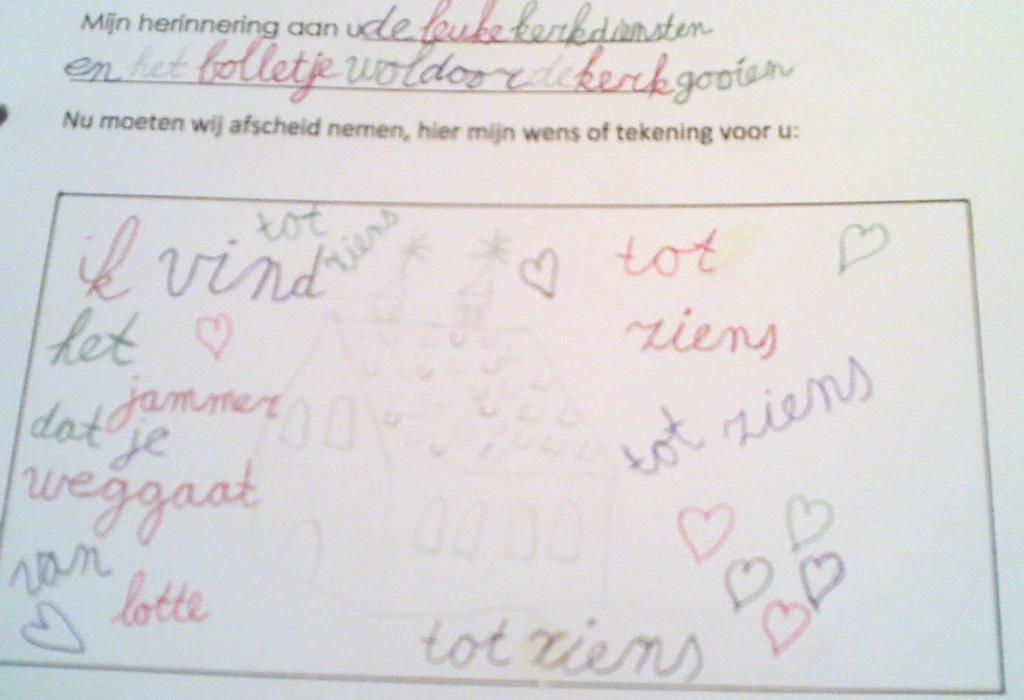 Mijn herinnering aan u de leuke kerkdiensten
en het bolletje wol door de kerk gooien
Nu moeten wij afscheid nemen, hier mijn wens of tekening voor u:
ik vind
het
jammer
dat je
weggaat
van
lotte
tot
ziens
tot
ziens
tot ziens
tot ziens